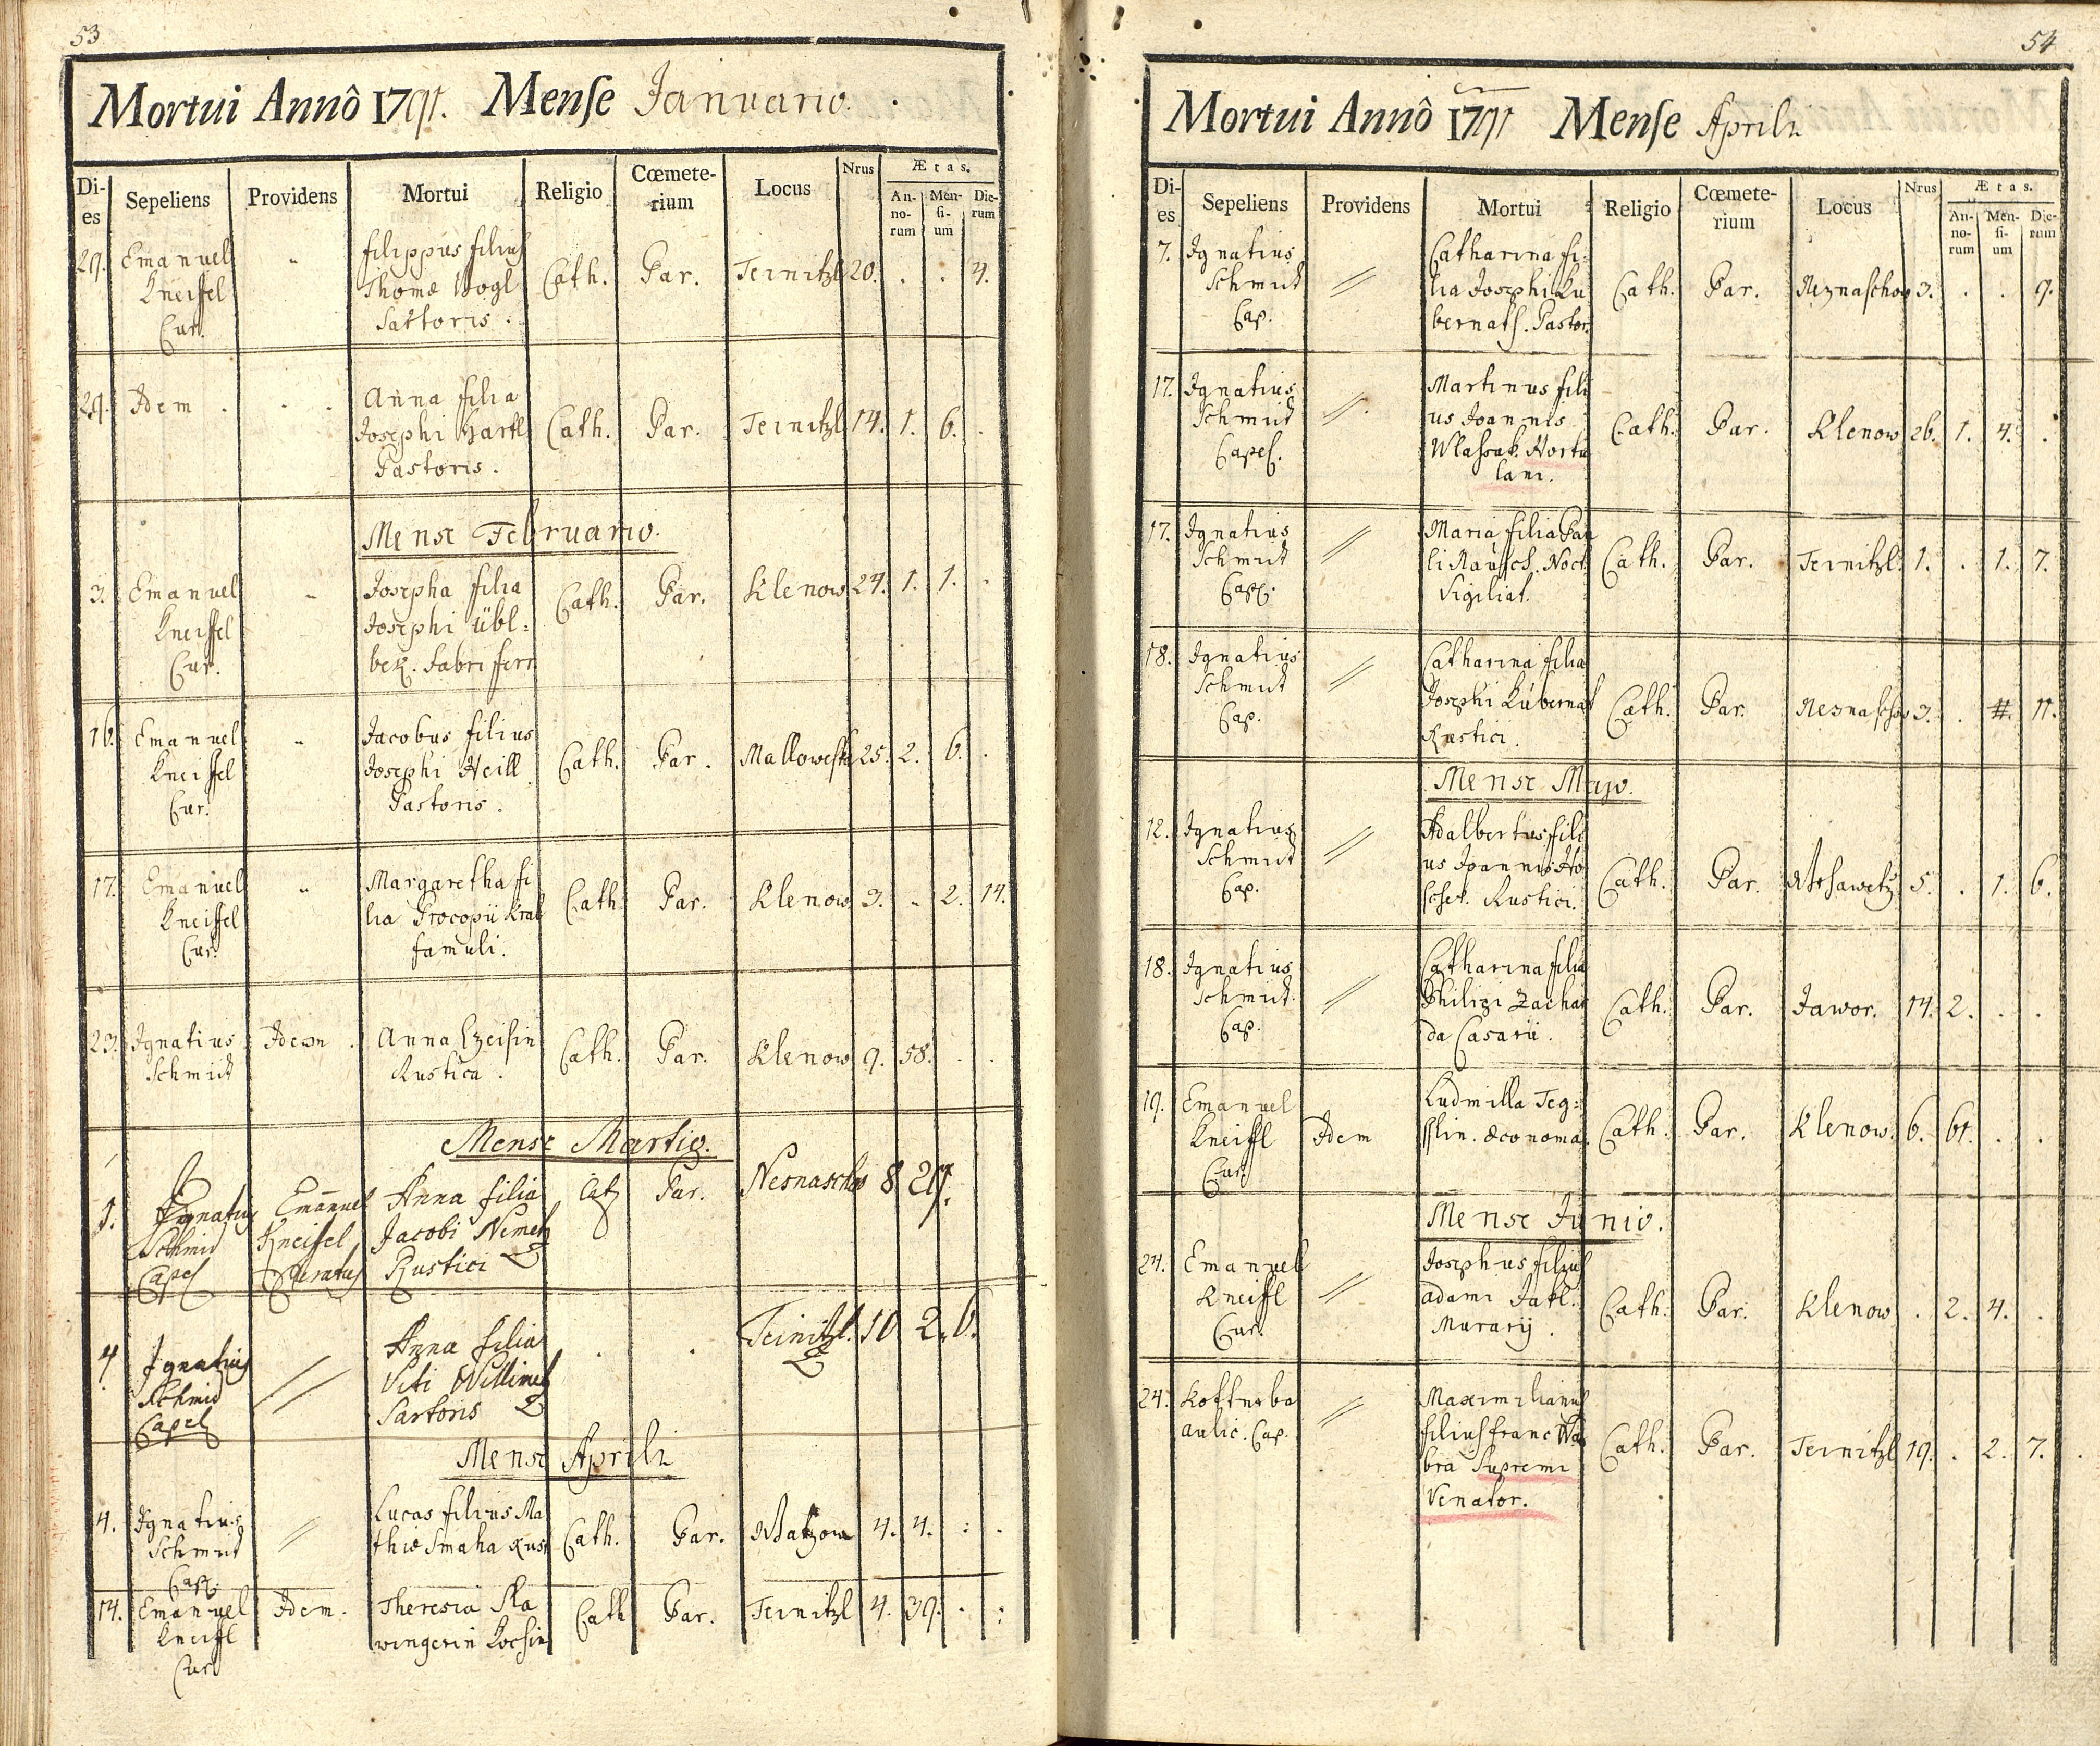 53
Mortui Annô 1791. Mense Januario.
Di-es Sepeliens Providens Mortui Religio Cœmete-rium Locus Nrus Ætas.
An-no-rum Men-si-um Die-rum
29. Emanuel Kneissel Cur. „ filippus filius Thomæ Vogl Sartoris. Cath. Par. Teinitzl 20. . . 4.
29. Idem . . . Anna filia Josephi Hartl Pastoris. Cath. Par. Teinitzl 14. 1. 6. .
Mense Februario.
3. Emanuel Kneissel Cur. „ Josepha filia Josephi übl= bek. Fabri ferr Cath. Par. Klenow 24. 1. 1. .
16. Emanuel Kneissel Cur. „ Jacobus filius Josephi Heill Pastoris. Cath. Par. 25. 2. 6. .
17. Emanuel Kneissel Cur. „ Margaretha fi lia Procopii Kral famuli. Cath. Par. Klenow 3. „ 2. 14.
23. Ignatius Schmidt Idem. Anna Rustica. Cath. Par. Klenow 9. 58. . .
Mense Martio.
1. Ignatius Schmid Capel Emanuel Kneissel Curatus Anna filia Jacobi Nemetz Rustici Cat Par. Nesnaschow 8
4 Ignatius Schmid Capel // Anna filia Viti Sartoris . . Teinitzl. 10 2. 6.
Mense Aprili
4. Ignatius Schmidt Cap. // Lucas filius Ma thiæ Smaha Rust Cath. Par. 4. 4. : .
14. Emanuel Kneissl Cur Idem. Theresia Sla Cath Par. Teinitzl 4. 39. . :
54
Mortui Annô 1791 Mense Aprili
Di-es Sepeliens Providens Mortui Religio Cœmete-rium Locus Nrus Ætas.
An-no-rum Men-si-um Die-rum
7. Ignatius Schmidt Cap. // Catharina fi= lia Josephi Ku bernath. Pastor. Cath. Par. Neznaschow 3. . . 9.
17. Ignatius Schmidt Capel. // Martinus fili us Joannis Wlassak. Hortu lani. Cath. Par. Klenow 26. 1. 4. .
17. Ignatius Schmidt Cap. // Maria filia Pau li Rausch. Noct. Vigiliat. Cath. Par. Teinitzl. 1. . 1. 7.
18. Ignatius Schmidt Cap. // Catharina filia Josephi Kubernat Rustici. Cath. Par. Nesnaschow 3. . 11.
Mense Majo.
12. Ignatius Schmidt Cap. // Adalbertus fili us Joannis Ho schek. Rustici. Cath. Par. 5. . 1. 6.
18. Ignatius Schmidt. Cap. // Catharina filia Philipi Zachar da Casarii. Cath. Par. Jawor. 14. 2. . .
19. Emanuel Kneissl Cur. Idem Ludmilla œconoma. Cath. Par. Klenow. 6. 61. . .
Mense Junio.
24. Emanuel Kneissl Cur. // Josephus filius adami Murarij. Cath. Par. Klenow . 2. 4. .
24. aulic. Cap. // Maximilianus filius franc Wa bra Supremi Venator. Cath. Par. Teinitzl 19. . 2. 7.